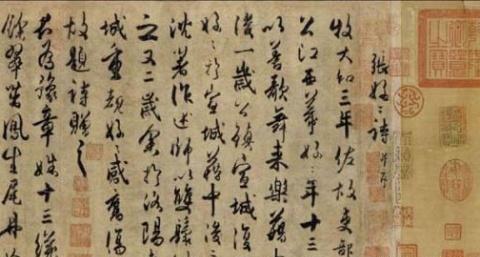 張好〻詩 并序
牧大和三年佐故吏部
公江西幕好〻年十三
以善歌舞来樂籍
後一歲公鎮宣城復
好〻於宣城籍中後
沈著作述師以雙鬟
之又二歲余於洛陽
城重覩好〻感舊傷
故題詩贈之
君為豫章姝十三纔
餘翠茁鳳生尾丹